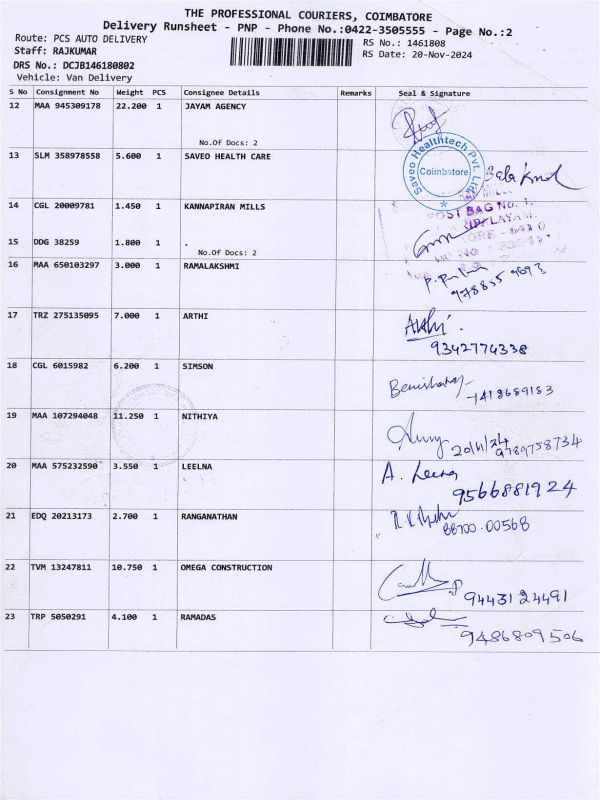 THE PROFESSIONAL COURIERS, COIMBATORE
Delivery Runsheet - PNP - Phone No.:0422-3505555 - Page No.:2
Route: PCS AUTO DELIVERY
RS No.: 1461808
Staff: RAJKUMAR
RS Date: 20-Nov-2024
DRS No.: DCJB146180802
Vehicle: Van Delivery
S No Consignment No Weight PCS Consignee Details Remarks Seal & Signature
12 MAA 945309178 22.200 1 JAYAM AGENCY
No.Of Docs: 2
13 SLM 358978558 5.600 1 SAVEO HEALTH CARE
Saveo Healthtech Pvt. Ltd
Coimbatore
14 CGL 20009781 1.450 1 KANNAPIRAN MILLS
POST BAG No. 1,
15 DDG 38259 1.800 1 .
No.Of Docs: 2
16 MAA 650103297 3.000 1 RAMALAKSHMI
17 TRZ 275135095 7.000 1 ARTHI
Arthi.
9342774338
18 CGL 6015982 6.200 1 SIMSON
19 MAA 107294048 11.250 1 NITHIYA
20/11/24
9789758734
20 MAA 575232590 3.550 1 LEELNA
A. Leena
9566881924
21 EDQ 20213173 2.700 1 RANGANATHAN
88700-00568
22 TVM 13247811 10.750 1 OMEGA CONSTRUCTION
9443124491
23 TRP 5050291 4.100 1 RAMADAS
9486809506